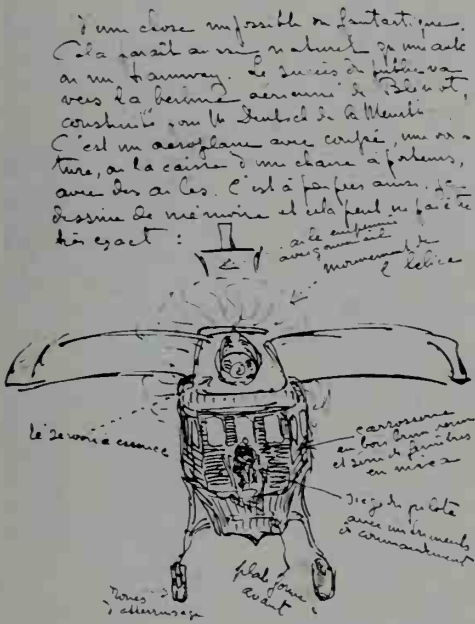 d'une chose impossible ou fantastique.
Cela paraît aussi naturel qu'une auto
ou un tramway. Le succès du public va
vers la berline aérienne de Blériot,
construite pour M Deutsch de la Meurthe
C'est un aéroplane avec coupé, une voi-
ture, ou la caisse d'une chaise à porteurs,
avec des ailes. C'est à peu près ainsi. Je
dessine de mémoire et cela peut ne pas être
très exact :
aile empennée
avec gouvernail
mouvement de
l'hélice
réservoir à essence
carrosserie
en bois brun verni
et fenêtres
en mica
siège du pilote
avec instruments
de commandement
roues
d'atterrissage
plate forme
avant